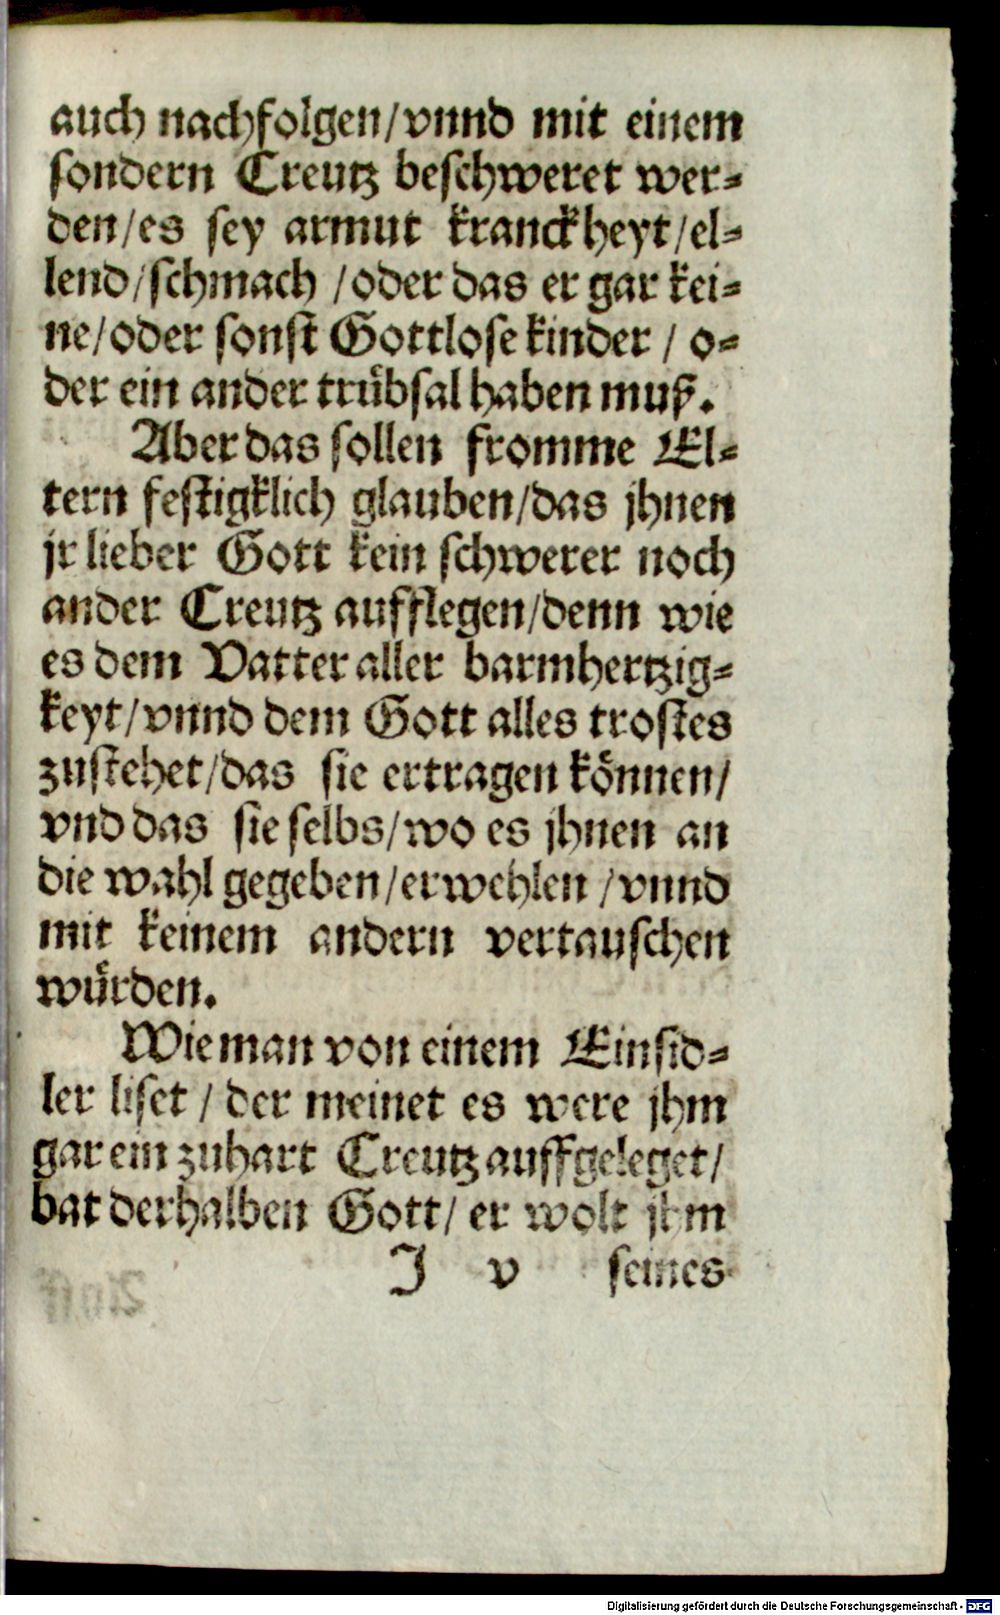 auch nachfolgen/vnnd mit einem
sondern Creutz beschweret wer-
den/es sey armut kranckheyt/el-
lend/schmach /oder das er gar kei-
ne/oder sonst Gottlose kinder / o-
der ein ander trübsal haben muß.
Aber das sollen fromme El-
tern festigklich glauben/das jhnen
jr lieber Gott kein schwerer noch
ander Creutz aufflegen/denn wie
es dem Vatter aller barmhertzig-
keyt/vnnd dem Gott alles trostes
zustehet/das sie ertragen können/
vnd das sie selbs/wo es jhnen an
die wahl gegeben/erwehlen /vnnd
mit keinem andern vertauschen
würden.
Wie man von einem Einsid-
ler liset / der meinet es were jhm
gar ein zuhart Creutz auffgeleget/
bat derhalben Gott/ er wolt jhm
J v seines
Digitalisierung gefördert durch die Deutsche Forschungsgemeinschaft - DFG